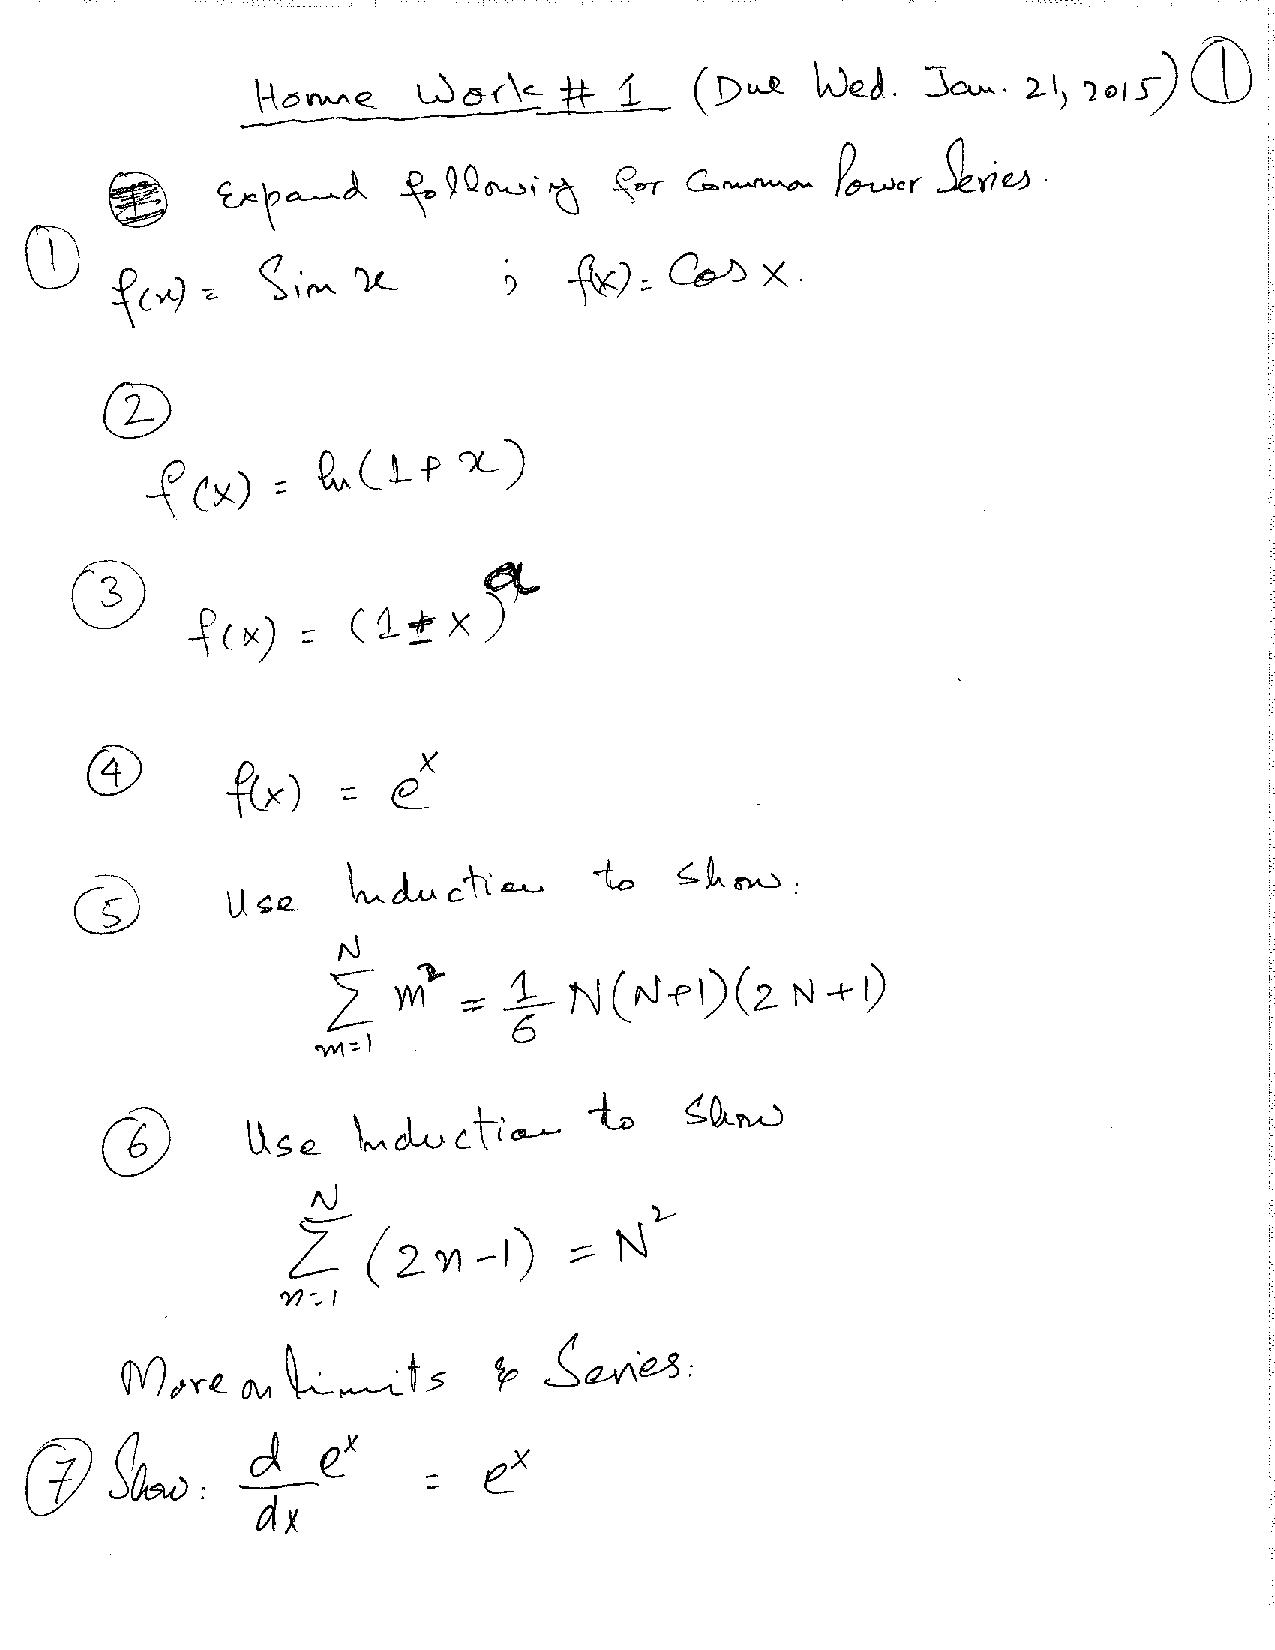 Home Work # 1 (Due Wed. Jan. 21, 2015) ①
Expand following for Common Power Series.
① f(x) = Sin x ; f(x) = Cos x.
②
f(x) = ln(1+x)
③ f(x) = (1±x)^a
④ f(x) = e^x
⑤ Use Induction to show:
∑_{m=1}^{N} m² = 1/6 N(N+1)(2N+1)
⑥ Use Induction to show
∑_{n=1}^{N} (2n-1) = N²
More on Limits & Series:
⑦ Show: d/dx e^x = e^x